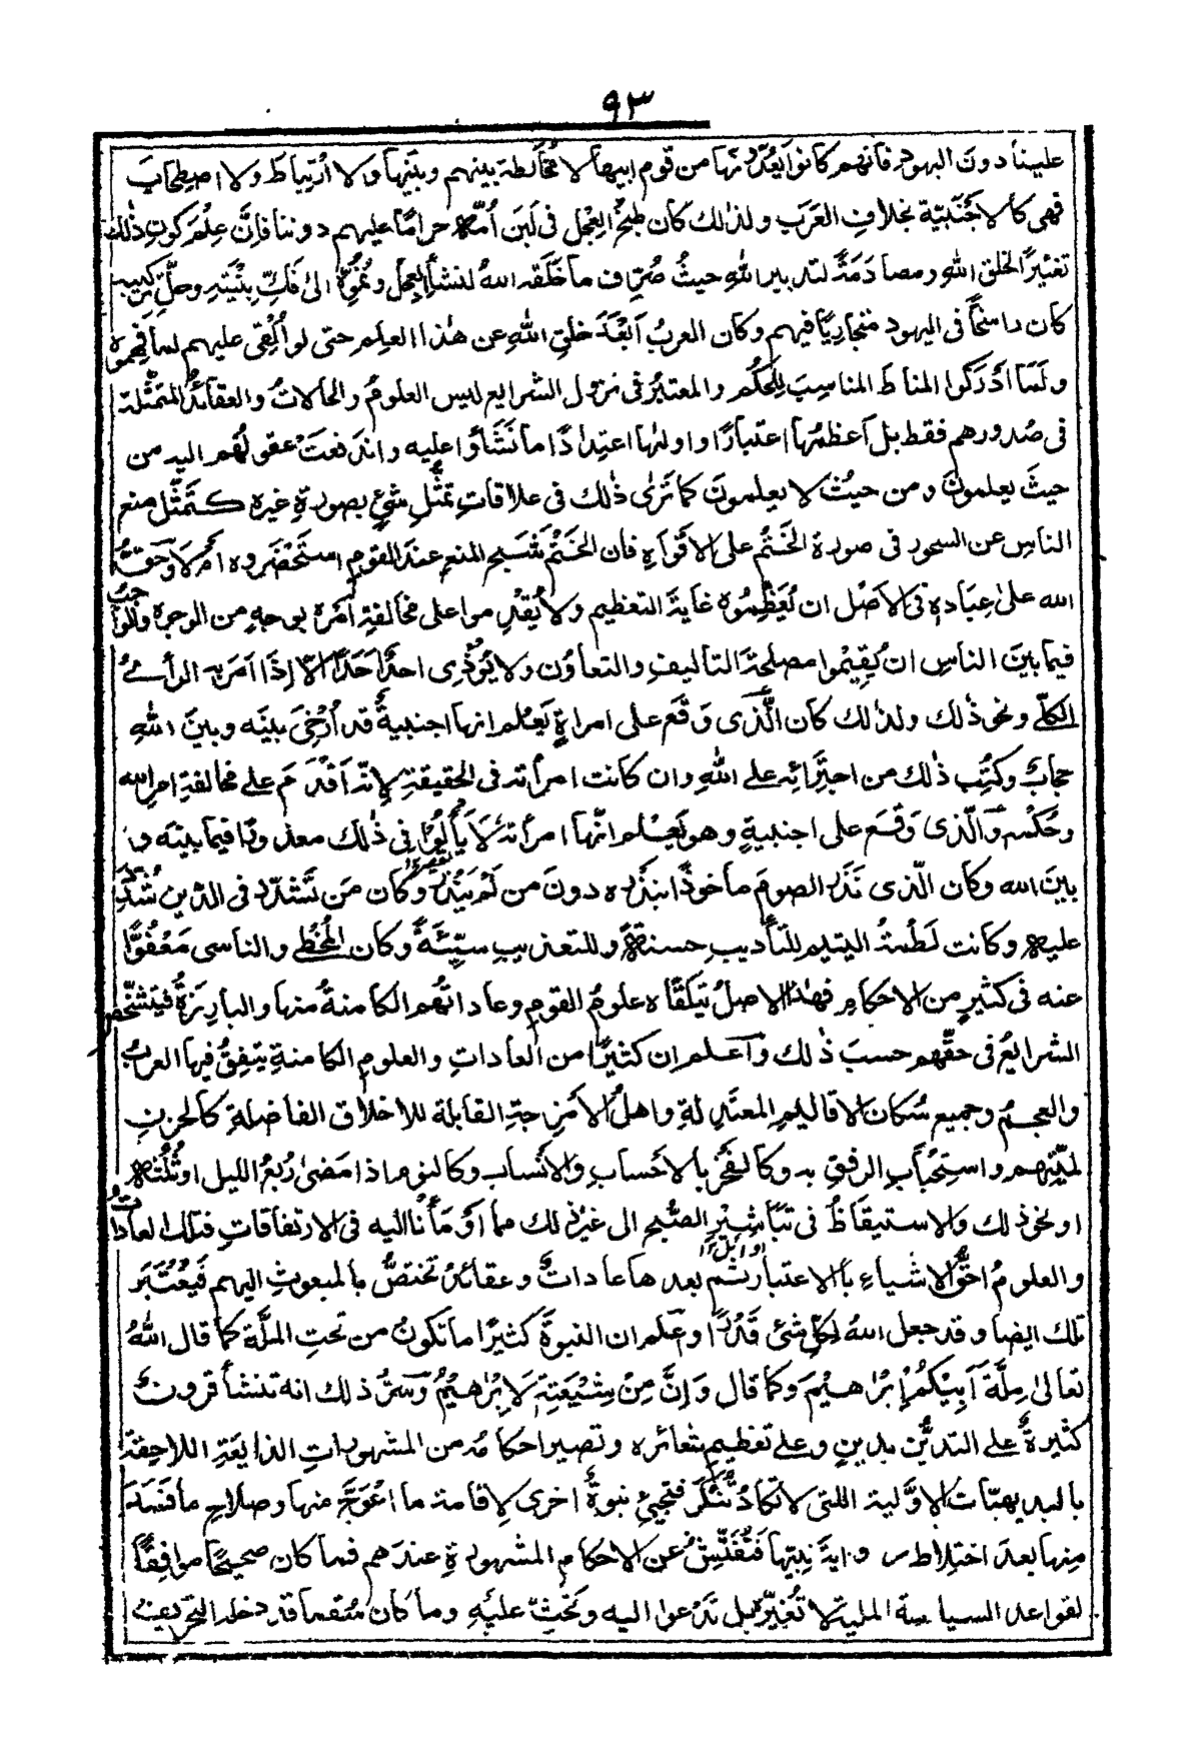 ٩٣
علينا دون اليهود فانهم كانوا يَعُدُّونها من قوم ابيها لا مُخالطة بينهم وبَيْنَها ولا ارتباطَ ولا اصطحابَ
فهى كالاجنبيّة بخلافِ العَرَب ولذٰلك كان طبخُ العِجْل فى لَبَن أُمّه حرامًا عليهم دوننا فإنَّ عِلْمَ كونِ ذٰلك
تغييرًا لخلق الله ومصادَمَةً لتدبير اللهِ حيثُ صُرِّف ما خَلَقه اللهُ لنشأِ العِجل ونُمُوِّه الىٰ فَكِّ بِنْيَتِه وحلِّ تركيبه
كان راسخًا فى اليهود متجاريًا فيهم وكان العربُ اَبْعَدَ خلقِ اللهِ عن هٰذا العِلم حتى لو أُلْقِى عليهم لما فَهِموه
ولَمَا ادْرَكُوا المناطَ المناسِبَ لِلْحُكْم والمعتبَرُ فى نزول الشرايع ليس العلومُ والحالاتُ والعقائدُ المتمثّلة
فى صُدورهم فقط بل اَعظمُها اعتبارًا واولٰها اعتِدادًا ما نَشَأوا عليه واندفعَتْ عقولُهم اليه من
حيثُ يعلمونَ ومن حيثُ لا يعلمونَ كما تَرىٰ ذٰلك فى علاقاتِ تمثُّلِ شئٍ بصورةِ غيره كتَمَثُّل منع
الناس عن السحور فى صورة الخَتْم على الافواه فان الخَتْمَ شَبَح المنعِ عند القوم استَحْضَروه اَم لَا وحقُّ
الله علىٰ عِبادِه فى الاَصْل ان يُعَظِّمُوه غايةَ التعظيم ولا يُقْدِموا على مخالفةِ امره بوجهٍ من الوجوه والواجب
فيما بينَ الناس ان يُقِيْمُوا مصلحةَ التاليفِ والتعاوُن ولا يُؤْذِى احدٌ اَحَدًا اِلّا اِذَا اَمَرَ به الرأىُ
الكلّى ونحو ذٰلك ولذٰلك كان الَّذى وَقَعَ على امراةٍ يَعْلم انها اجنبيةٌ قد اُرْخِىَ بينَه وبينَ اللهِ
حجابٌ وكُتِب ذٰلك من اجتِرَائِه على اللهِ وان كانت امرأته فى الحقيقةِ لانه اَقْدَمَ على مخالفةِ امرِ الله
وحُكْمِه والّذى وَقَع على اجنبيةٍ وهو يَعْلم انّها امرأته لَا يَأْلُوا فى ذٰلك معذورًا فيما بينَه و
بينَ الله وكان الّذى نَذَر الصومَ مأخوذًا بنَذْره دونَ من لَمْ يَنْذُر وكان مَن تَشَدَّد فى الدّين شُدِّد
عليه وكانت لَطْمةُ اليتيم للتأديبِ حسنةً وللتعذيبِ سيّئةً وكان المُخطِئ والناسى مَعْفُوًّا
عنه فى كثيرٍ من الاحكامِ فهٰذا الاصلُ يتلقّاه علومُ القوم وعاداتُهم الكامنةُ منها والبارِزةُ فيَتَشَخّصُ
الشرايعُ فى حقّهم حسبَ ذٰلك واعلم ان كثيرًا من العاداتِ والعلومِ الكامنةِ يتّفقُ فيها العربُ
والعجمُ وجميع سُكان الاقاليمِ المعتدلةِ واهلُ الاَمْزِجةِ القابلة للاخلاق الفاضلةِ كالحزن
لميّتهم واستحبابِ الرفقِ به وكالفَخْرِ بالاحسابِ والاَنْساب وكالنوم اذا مَضىٰ رُبْعُ الليل او ثُلُثه
او نحو ذٰلك والاستيقاظُ فى تباشيرِ الصُّبح الى غير ذٰلك مما اَوْمَأْنا اليه فى الارتفاقاتِ فتلك العادات
اوائل ١٢
والعلومُ احقُّ الاشياءِ بالاعتبار ثم بعدها عاداتٌ وعقائدُ تختصُّ بالمبعوثِ اليهم فَيُعْتَبَر
تلك ايضا وقد جعل اللهُ لكلّ شئ قَدْرًا واعلم ان النبوةَ كثيرًا ما تكونُ من تحتِ الملَّة كما قال اللهُ
تعالىٰ مِلَّةَ اَبِيْكُمْ اِبْرَاهِيْمَ وكما قال وَاِنَّ مِنْ شِيْعَتِهٖ لَاِبْرَاهِيْمَ وسِرُّ ذٰلك انه تنشأ قرونٌ
كثيرةٌ على التديُّن بدينٍ وعلى تعظيمِ شعائره وتصير احكامُه من المشهوراتِ الذايعَةِ اللاحقةِ
بالبديهيّات الاوَّلية اللتى لا تكاد تُنْكَر فتجيئ نبوةٌ اخرى لاِقامة ما اعْوَجَّ منها وصلاحِ ما فَسَدَ
مِنها بعد اختلاطِ روايةِ نبيِّها فتُفَتِّشُ عن الاحكام المشهورةِ عندهم فما كان صحيحًا موافقًا
لقواعد السياسة الملية لا تُغَيِّرُه بل تَدْعوا اليه وتَحُثّ عليه وما كان سقيما قد دخله التحريف